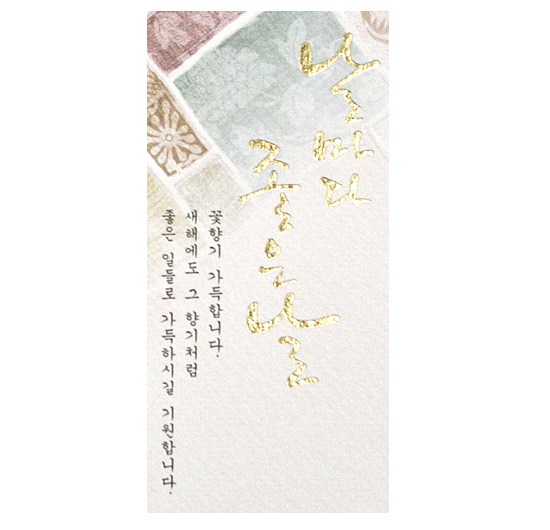 날마다
좋은 날
꽃향기 가득합니다.
새해에도 그 향기처럼
좋은 일들로 가득하시길 기원합니다.